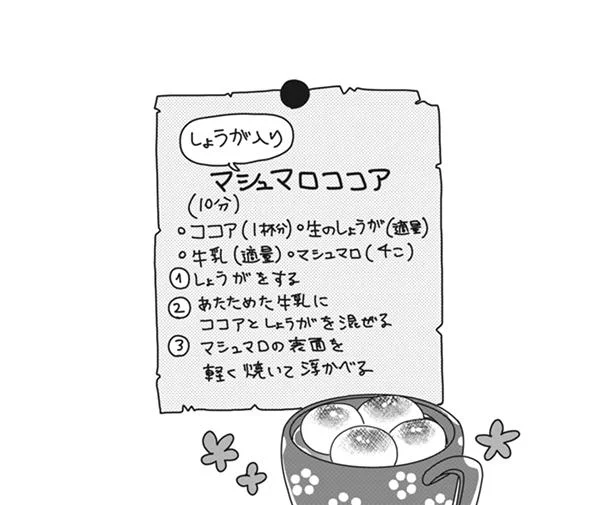 しょうが入り
マシュマロココア
(10分)
○ココア(1杯分)○生のしょうが(適量)
○牛乳(適量)○マシュマロ(4こ)
①しょうがをする
②あたためた牛乳に
ココアとしょうがを混ぜる
③マシュマロの表面を
軽く焼いて浮かべる